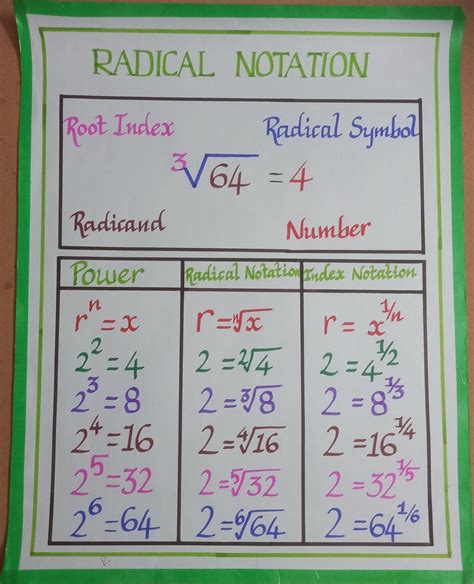 RADICAL NOTATION
Root Index Radical Symbol
∛64 = 4
Radicand Number
Power Radical Notation Index Notation
rⁿ=x r=ⁿ√x r = x^1/n
2²=4 2=²√4 2=4^1/2
2³=8 2=³√8 2=8^1/3
2⁴=16 2=⁴√16 2=16^1/4
2⁵=32 2=⁵√32 2=32^1/5
2⁶=64 2=⁶√64 2=64^1/6